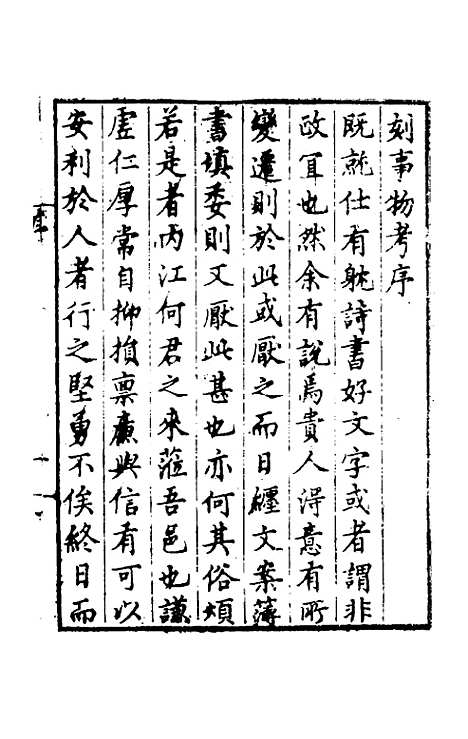 刻事物考序
既就仕有躭詩書好文字或者謂非
政冝也然余有說焉貴人得意有所
變遷則於此或厭之而日纒文案簿
書填委則又厭此甚也亦何其俗煩
若是者內江何君之來蒞吾邑也謙
虛仁厚常自抑損稟廉與信有可以
安利於人者行之堅勇不俟終日而